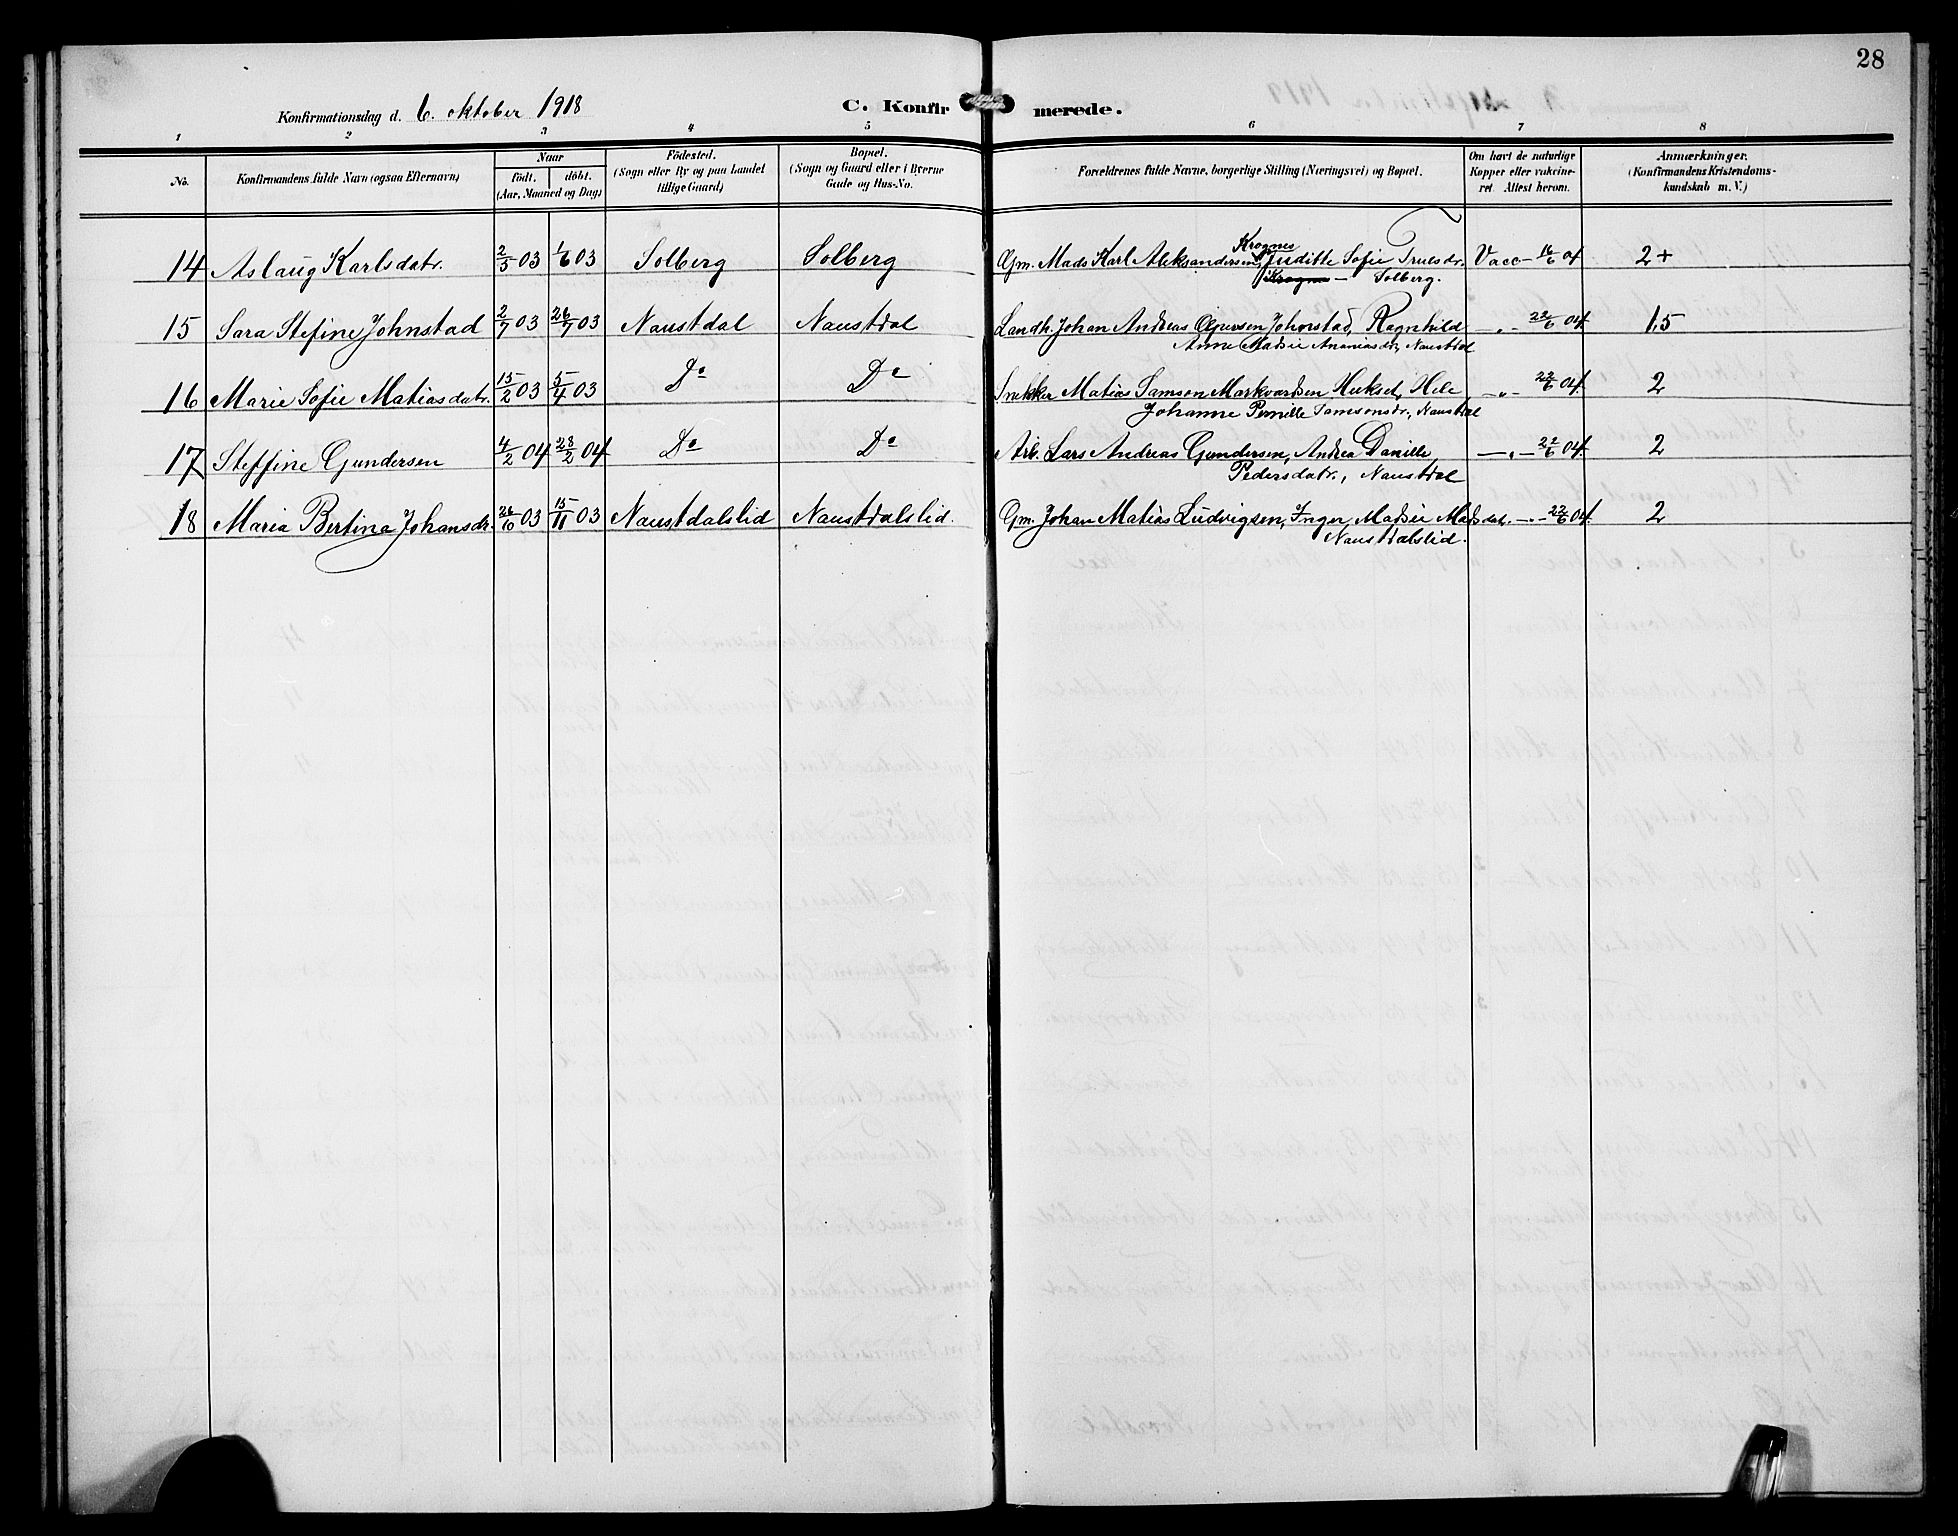 28
Konfirmationsdag d. 6. oktober 1918
C. Konfirmerede.
1 2 3 4 5 6 7 8
No.
Konfirmandens fulde Navn (ogsaa Efternavn)
Naar
født. døbt.
(Aar, Maaned og Dag)
Fødested.
(Sogn eller By og paa Landet
tillige Gaard)
Bopæl.
(Sogn og Gaard eller i Byerne
Gade og Hus-No.
Forældrenes fulde Navne, borgerlige Stilling (Næringsvei) og Bopæl.
Om havt de naturlige
Kopper eller vakcine-
ret. Attest herom.
Anmærkninger.
(Konfirmandens Kristendoms-
kundskab m. V.)
14 Aslaug Karlsdatr. 2/5 03 1/6 03 Solberg Solberg Gm. Mads Karl Aleksandersen Krognes, Juditte Sofie Trulsdr. Vacc - 16/6 04 2+
Solberg.
15 Sara Stefine Johnstad 2/7 03 26/7 03 Naustdal Naustdal Landh. Johan Andreas Johnstad, Ragnhild -"- 22/6 04 1,5
Anne Madsie Ananiasdr, Naustdal
16 Marie Sofie Matiasdatr. 15/2 03 5/4 03 Do Do Snekker Matias Samson Markvardsen -"- 22/6 04 2
Johanne Pernille Samsonsdr., Naustdal
17 Steffine Gundersen 4/2 04 28/2 04 Do Do Arb. Lars Andreas Gundersen, Andrea Danille -"- 22/6 04 2
Pedersdatr., Naustdal
18 Maria Bertina Johansdr. 26/10 03 15/11 03 Naustdalslid Naustdalslid. Gm. Johan Matias Ludvigsen, Inger Madsie Madsdat. -"- 22/6 04 2
Naustdalslid.